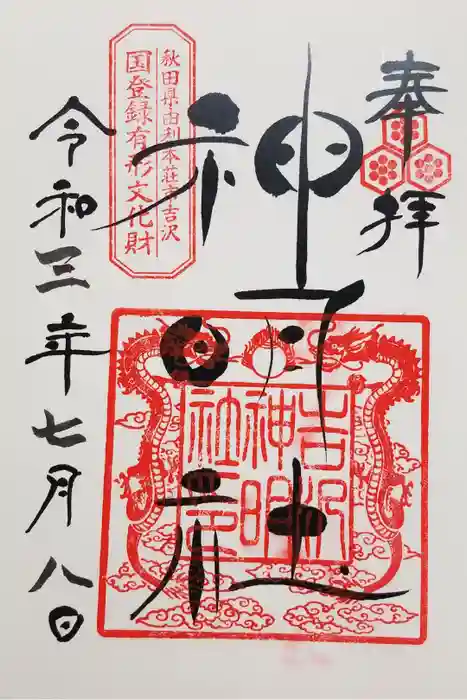 奉拝
神明社
秋田県由利本荘市吉沢
国登録有形文化財
吉沢
神明
社
令和三年七月八日